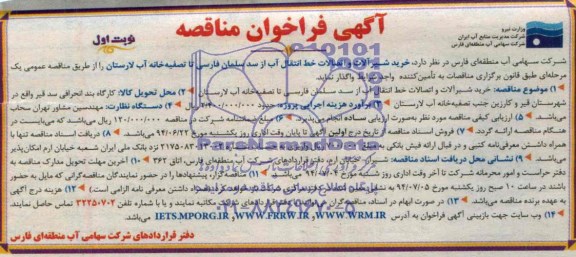 وزارت نیرو
شرکت مدیریت منابع آب ایران
شرکت سهامی آب منطقه‌ای فارس
آگهی فراخوان مناقصه
نوبت اول
شرکت سهامی آب منطقه‌ای فارس در نظر دارد، خرید شیرآلات و اتصالات خط انتقال آب از سد سلمان فارسی تا تصفیه‌خانه آب لارستان را از طریق مناقصه عمومی یک
مرحله‌ای طبق قانون برگزاری مناقصات به تأمین‌کننده واجد شرایط واگذار نماید.
۱) موضوع مناقصه: خرید شیرآلات و اتصالات خط انتقال آب از سد سلمان فارسی تا تصفیه‌خانه آب لارستان ۲) محل تحویل کالا: کارگاه بند انحرافی سد قیر واقع در
شهرستان قیر و کارزین جنب تصفیه‌خانه آب لارستان ۳) برآورد هزینه اجرایی پروژه: حدود ریال ۴) دستگاه نظارت: مهندسین مشاور تهران سحاب
می‌باشد. ۵) ارزیابی کیفی مناقصه مورد نظر به‌صورت ارزیابی ساده انجام می‌پذیرد. ۶) مبلغ ضمانتنامه شرکت در مناقصه ۱۲۰/۰۰۰/۰۰۰ ریال می‌باشد که می‌بایست در
هنگام مناقصه ارائه گردد. ۷) فروش اسناد مناقصه از تاریخ درج اولین آگهی تا پایان وقت اداری روز یکشنبه مورخ ۹۴/۰۶/۲۲ می‌باشد. ۸) دریافت اسناد مناقصه تنها با
همراه داشتن معرفی‌نامه کتبی و در قبال ارائه فیش بانکی به نزد بانک ملی ایران شعبه خیابان ارم امکان‌پذیر
می‌باشد. ۹) نشانی محل دریافت اسناد مناقصه: شیراز، خیابان ارم، دفتر قراردادهای شرکت آب منطقه‌ای فارس، اتاق ۳۶۲ ۱۰) آخرین مهلت تحویل مدارک مناقصه به
دفتر حراست و امور محرمانه شرکت تا آخر وقت اداری روز مورخ می‌باشد. ۱۱) پیشنهادها در حضور نمایندگان مناقصه‌گرانی که مایل به حضور
باشند در ساعت ۱۰ صبح روز یکشنبه مورخ ۹۴/۰۷/۰۵ به همراه داشتن معرفی نامه الزامی است) ۱۲) هزینه درج آگهی
به عهده برنده مناقصه می‌باشد. ۱۳) در صورت ابهام در اسناد، مناقصه‌گران با دفتر قراردادهای شرکت مکاتبه نمایند و یا با شماره تلفن ۳۲۲۵۰۷۰۲ تماس حاصل نمایند.
۱۴) وب سایت جهت بازبینی آگهی فراخوان به آدرس IETS.MPORG.IR ,WWW.FRRW.IR ,WWW.WRM.IR می‌باشد.
دفتر قراردادهای شرکت سهامی آب منطقه‌ای فارس
ParsNamadData
۰۲۱-۸۸۳۴۹۶۷۰-۵